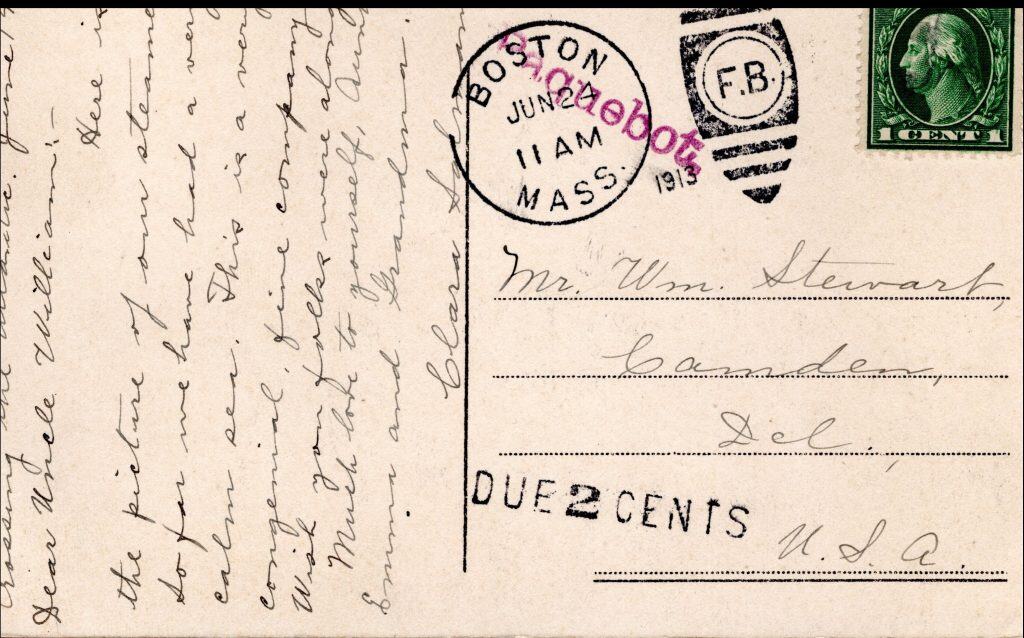 Crossing the Atlantic. June 14
Dear Uncle William:-
Here is
the picture of our steamer
So far we have had a very
calm sea. This is a very
congenial, fine company
Wish you folks were along
Much love to yourself, Aunt
Emma and Grandma.
Clara
Paquebot.
BOSTON
JUN 24
11 AM
MASS.
1913
F.B.
1 CENT 1
Mr. Wm. Stewart,
Camden,
Del.,
DUE 2 CENTS
U.S.A.